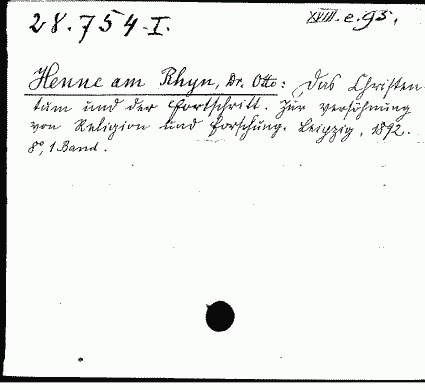 28.754-I.
XVIII.e.95.
Henne am Rhyn, Dr. Otto: Das Christen-
tum und der Fortschritt. Zur Versöhnung
von Religion und Forschung. Leipzig, 1892.
8°, 1 Band.